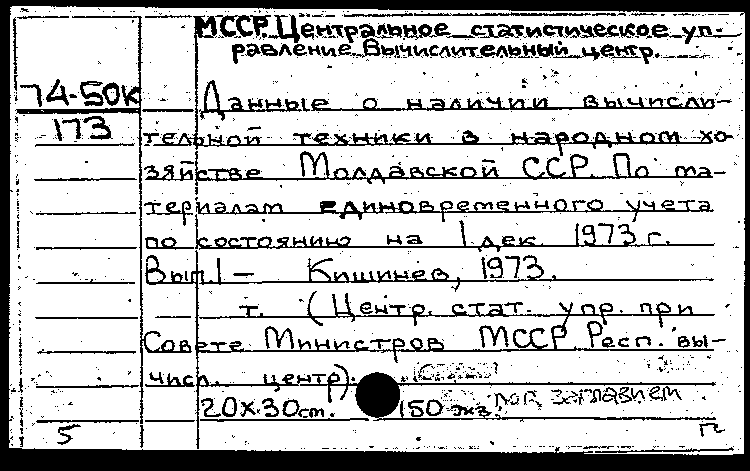 МССР. Центральное статистическое уп-
равление. Вычислительный центр.
74-50к
173
Данные о наличии вычисли-
тельной техники в народном хо-
зяйстве Молдавской ССР. По ма-
териалам единовременного учета
по состоянию на 1 дек. 1973 г.
Вып. 1 – Кишинев, 1973.
т. (Центр. стат. упр. при
Совете Министров МССР. Респ. вы-
числ. центр).
20х30 ст. 150 экз. под заглавием
5 п